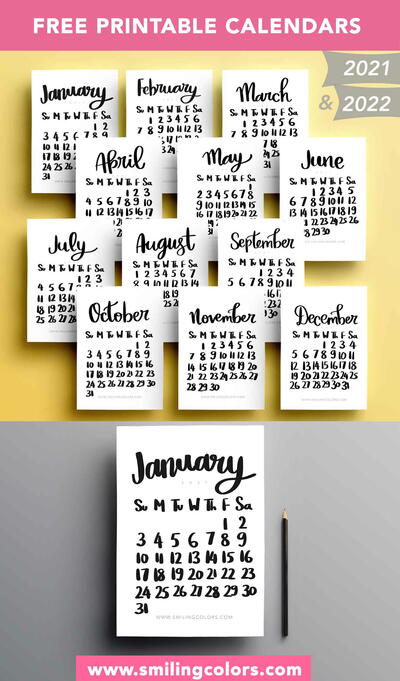 FREE PRINTABLE CALENDARS
2021
& 2022
January
Su M Tu W Th F Sa
1 2
3 4 5
10 11 12
17 18 19
24 25 26
31
February
Su M Tu W Th F Sa
1 2 3 4 5 6
7 8 9 10 11 12 13
March
Su M Tu W Th F Sa
1 2 3 4 5 6
7 8 9 10 11 12 13
April
Su M Tu W Th F Sa
1 2 3
4 5 6
11 12 13
18 19 20
25 26 27
May
Su M Tu W Th F Sa
1
2 3 4 5 6 7 8
June
Su M Tu W Th F Sa
1 2 3 4 5
6 7 8 9 10 11 12
July
Su M Tu W Th F Sa
1 2 3
4 5 6
11 12 13
18 19 20
25 26 27
August
Su M Tu W Th F Sa
1 2 3 4 5 6 7
September
Su M Tu W Th F Sa
1 2 3 4
October
Su M Tu W Th F Sa
1 2
3 4 5 6 7 8 9
10 11 12 13 14 15 16
17 18 19 20 21 22 23
24 25 26 27 28 29 30
31
WWW.SMILINGCOLORS.COM
November
Su M Tu W Th F Sa
1 2 3 4 5 6
7 8 9 10 11 12 13
14 15 16 17 18 19 20
21 22 23 24 25 26 27
28 29 30
WWW.SMILINGCOLORS.COM
December
Su M Tu W Th F Sa
1 2 3 4
5 6 7 8 9 10 11
12 13 14 15 16 17 18
19 20 21 22 23 24 25
26 27 28 29 30 31
WWW.SMILINGCOLORS.COM
January
2021
Su M Tu W Th F Sa
1 2
3 4 5 6 7 8 9
10 11 12 13 14 15 16
17 18 19 20 21 22 23
24 25 26 27 28 29 30
31
WWW.SMILINGCOLORS.COM
www.smilingcolors.com